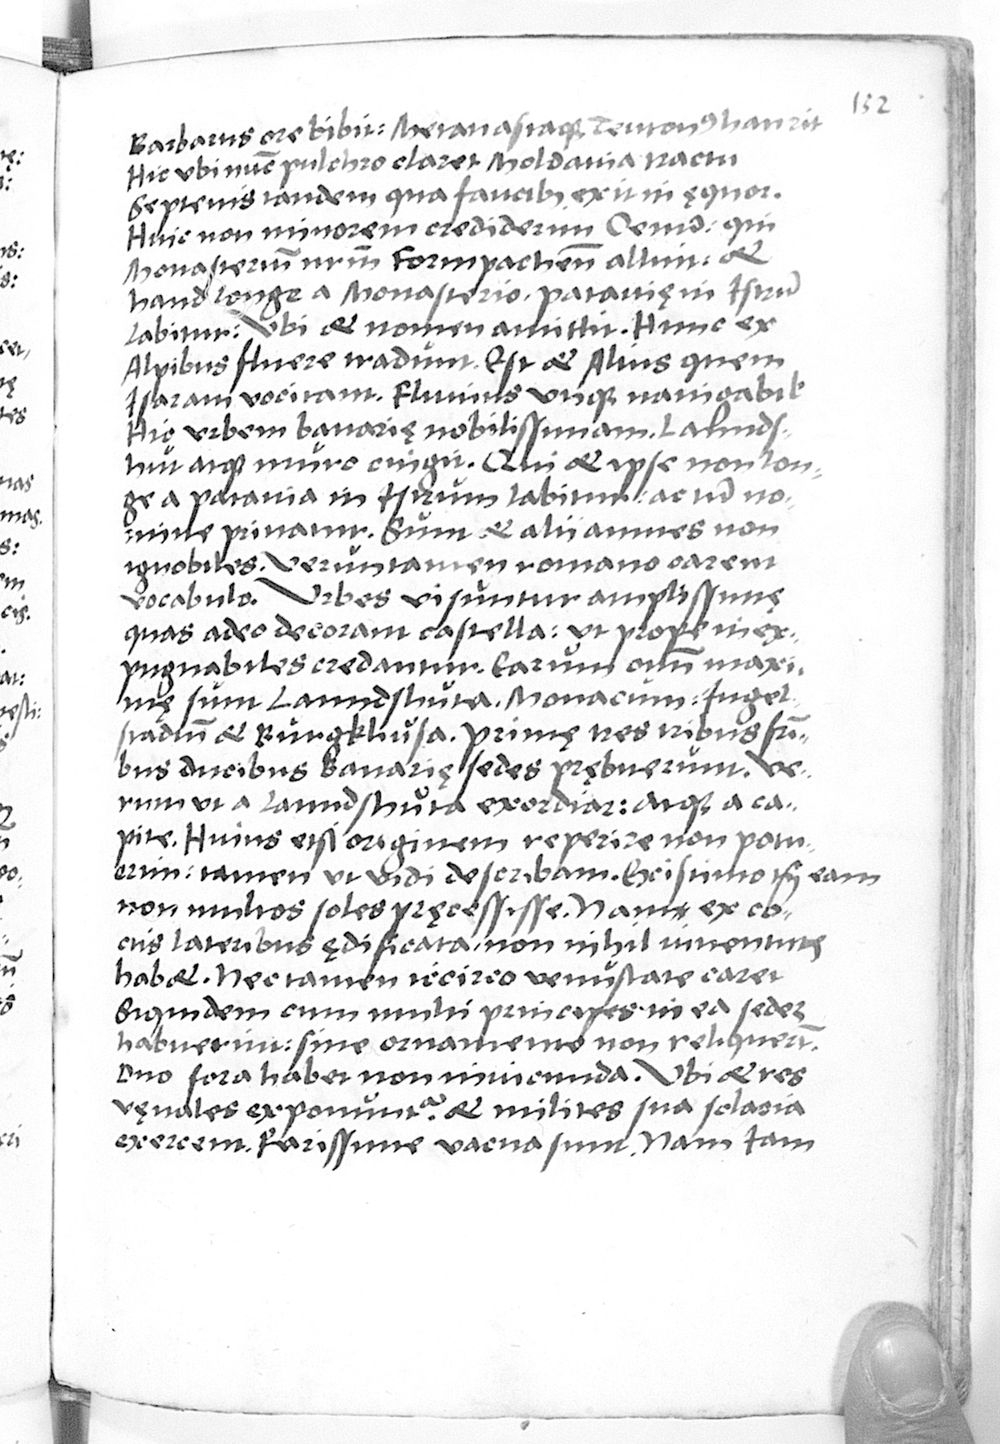 152
Barbarus ore bibit: Metanastaqꝫ Teutonꝰ haurit
Hic vbi nūc pulchro claret Moldauia tractu
Septenis tandem qua faucibꝫ exit in ęquor.
Huic non minorem crediderim Oenū: qui
Monasteriū nrm̄ Formpachēn̄ alluit: &
haud longe a Monasterio. patauię in Istrū
labitur: Vbi & nomen amittit. Hunc ex
Alpibus fluere tradunt. Est & Alius quem
Isaram vocitant. Fluuius vtiqꝫ nauigabilꝭ
Hic vrbem bauarię nobilissimam. Lannds-
hut atqꝫ muro cingit. Qui & ipse non lon-
ge a patauia in Istrum labitur: ac tū no-
mine priuatur. Sunt & alii amnes non
ignobiles. Veruntamen romano carent
vocabulo. Vrbes visuntur amplissimę
quas adeo decorant castella: vt prope inex-
pugnabiles credantur. Earum oīm̄ maxi-
mę sunt Lanndshuta. Monacum: Ingel-
stadiū & Burgkhusa. Primę tres tribus frī-
bus ducibus Bauarię sedes prębuerunt. Ve-
rum vt a lanndshuta exordiar: atqꝫ a ca-
pite. Huius etsi originem reperire non potu-
erim: tamen vt vidi describam. Existimo eam
non multos soles pręcessisse. Nam ex co-
ctis lateribus ędificata. non nihil iuuentutę
hab&. Nec tamen iccirco venustate caret
Siquidem cum multi principes in ea sedes
habuerint: sine ornamento non reliquerūt.
Duo fora habet non iniucunda. Vbi & res
vęnales exponunt᷑. & milites sua solatia
exercent. Rarissime vacua sunt. Nam Iam